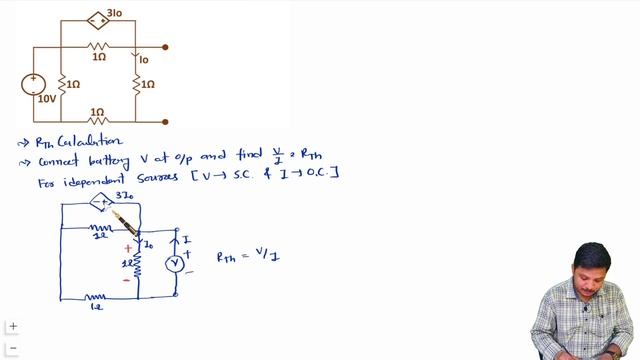 3Io
1Ω
Io
1Ω
1Ω
10V
1Ω
→ RTh Calculation
→ Connect battery V at o/p and find V/I = RTh
For idependent Sources [V → S.C. & I → O.C.]
3Io
- +
1Ω
Io
I
+
+
1Ω
V
RTh = V/I
-
-
1Ω
+
−